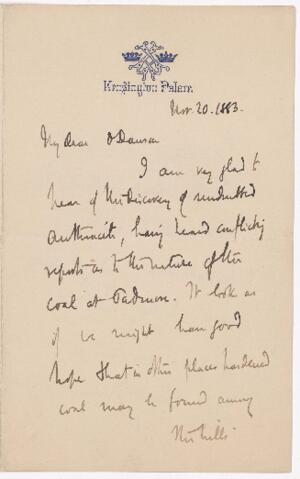 Kensington Palace
Nov. 20. 1883.
My dear Dr Dawson
I am very glad to
hear of the discovery of undoubted
anthracite, having heard conflicting
reports as to the nature of the
coal at Padmore. It looks as
if we might have good
hope that in other places hardened
coal may be found among
the hills.